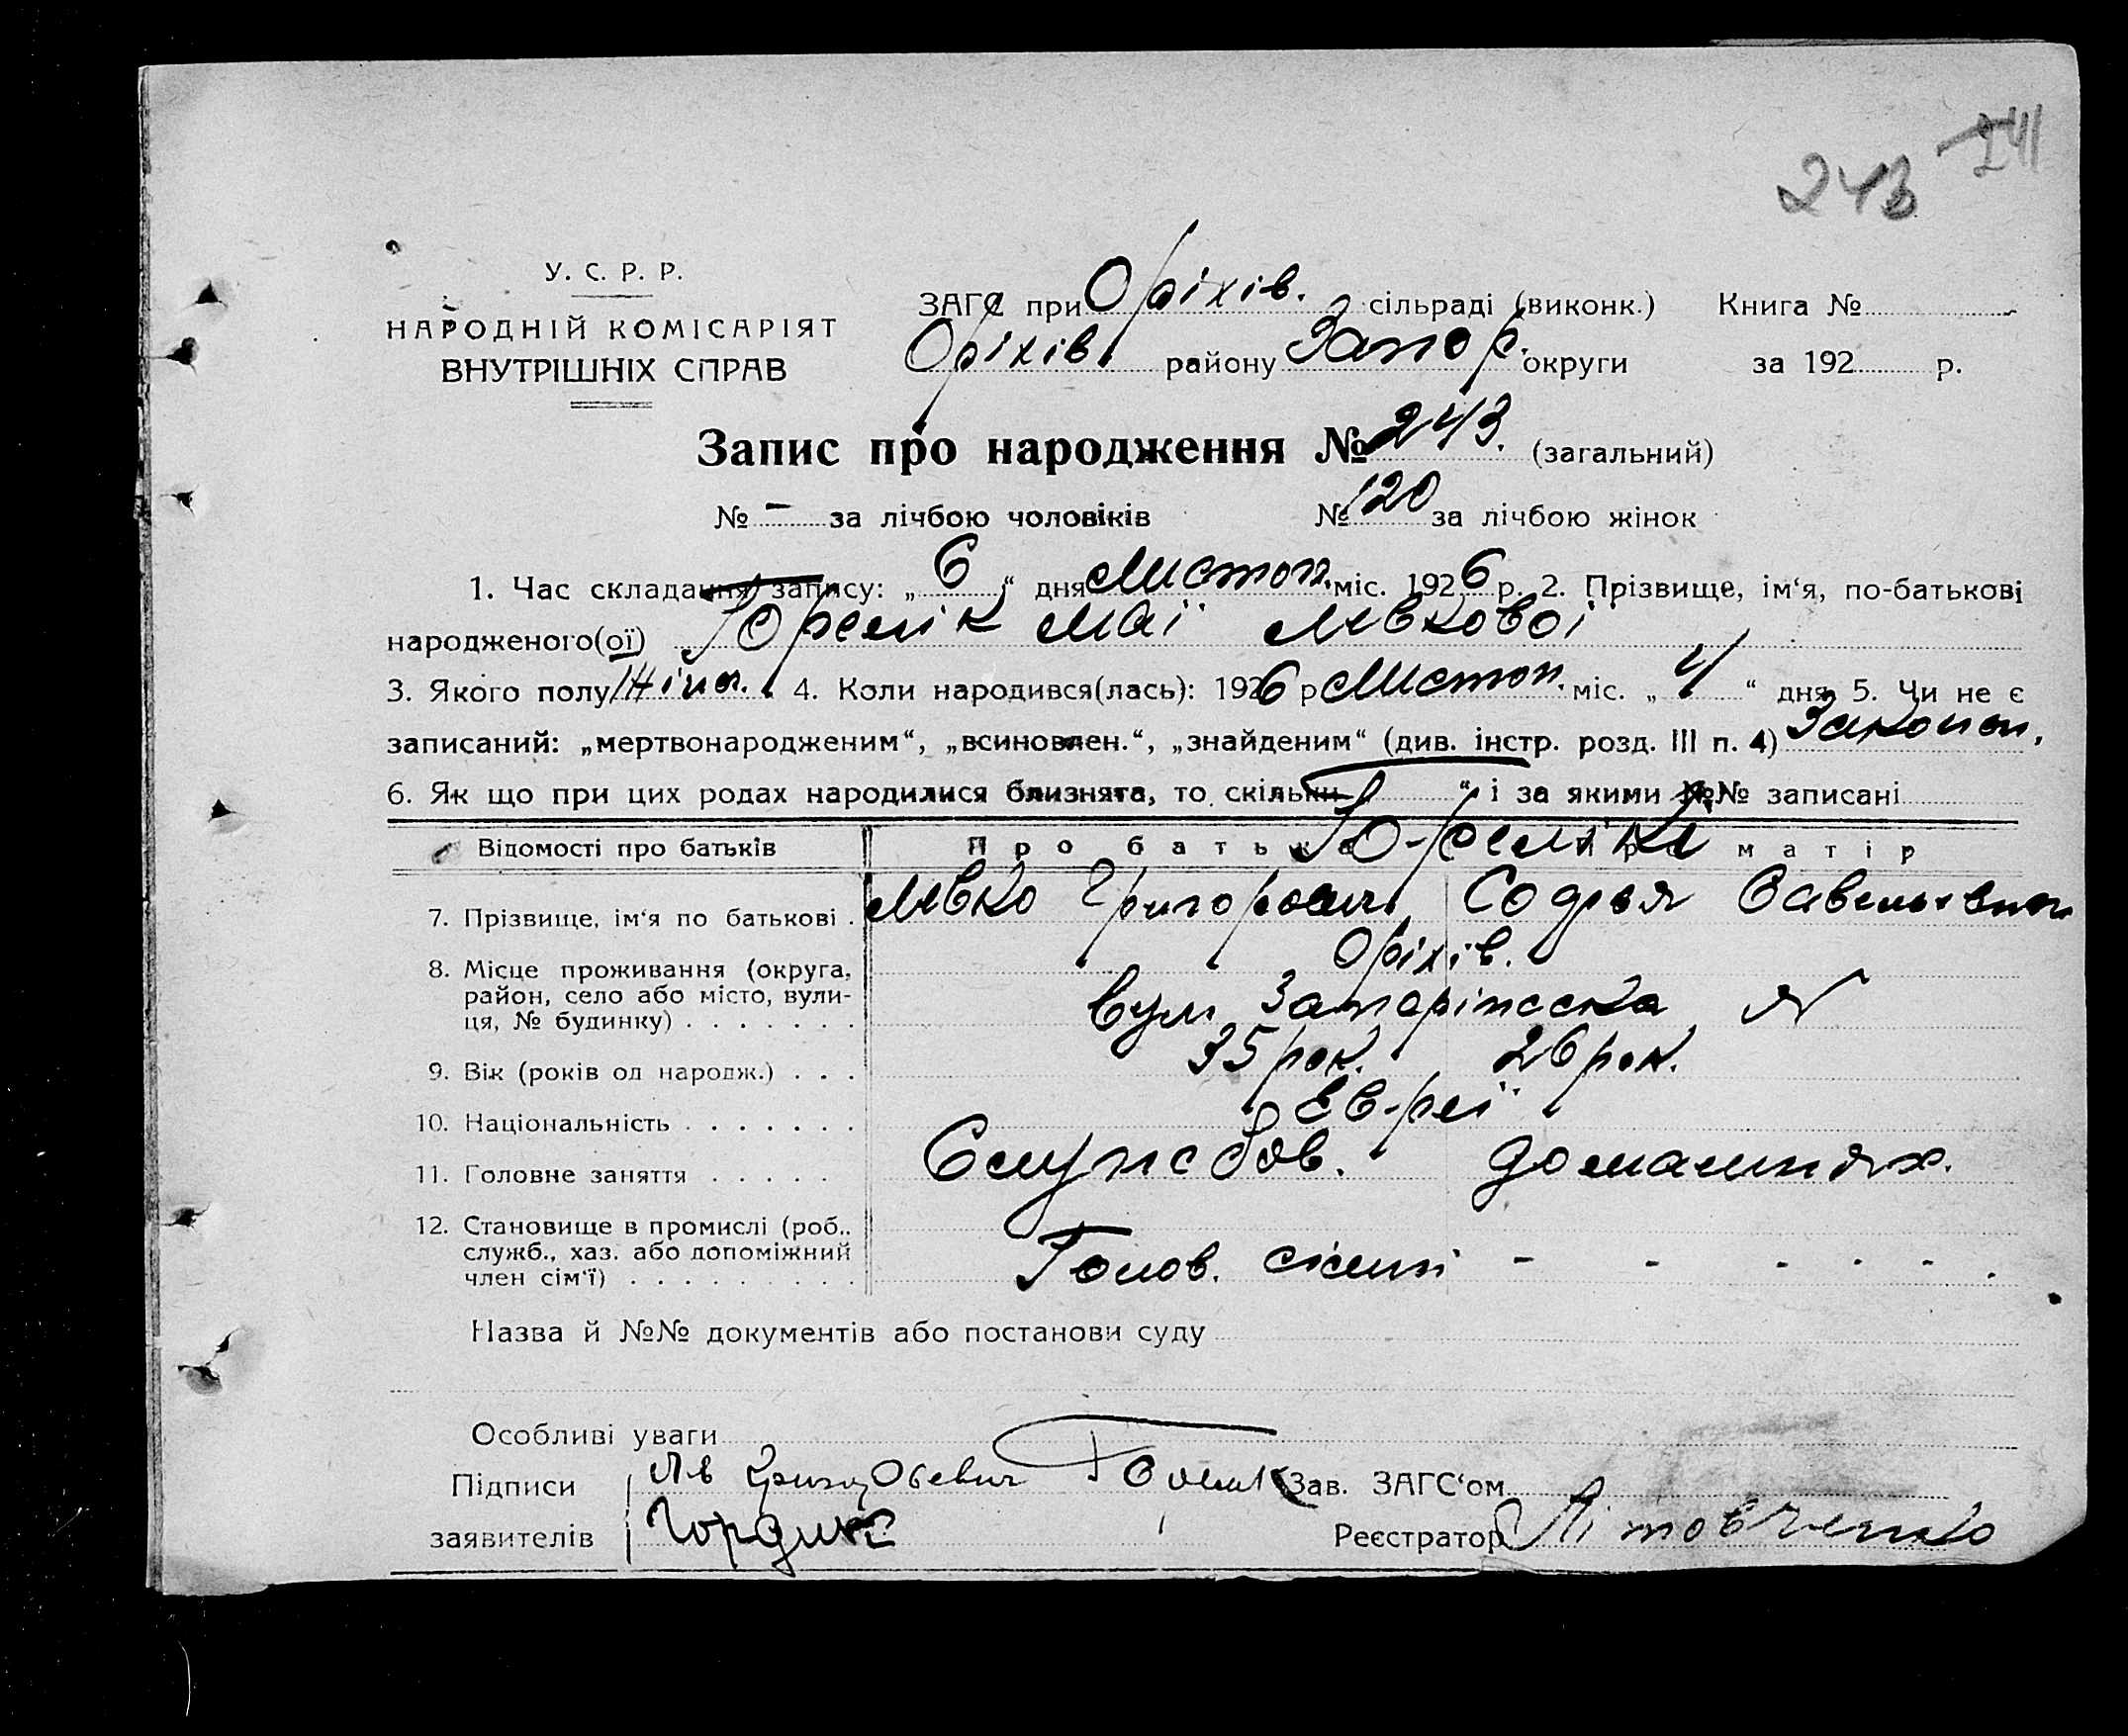 241
243
У. С. Р. Р.
НАРОДНІЙ КОМІСАРІЯТ
ВНУТРІШНІХ СПРАВ
ЗАГС при Оріхів. сільраді (виконк.) Книга №
Оріхів району Запор. округи за 192 р.
Запис про народження № 243. (загальний)
№ - за лічбою чоловіків № 120 за лічбою жінок
1. Час складання запису: „6“ дня Листоп. міс. 1926 р. 2. Прізвище, ім‘я, по-батькові
народженого(ої) Маї Левкової
3. Якого полу Жіноч. 4. Коли народився(лась): 1926 р Листоп. міс. „4“ дня 5. Чи не є
записаний: „мертвонародженим“, „всиновлен.“, „знайденим“ (див. інстр. розд. III п. 4) Законон.
6. Як що при цих родах народилися близнята, то скільки “ і за якими №№ записані
Відомості про батьків Про батька Про матір
7. Прізвище, ім‘я по батькові . Левко Григорович Софья Савельевна
8. Місце проживання (округа, Оріхів.
район, село або місто, вули-
ця, № будинку) . . . . . . . вул Запоріжська №
9. Вік (років од народж.) . . . 35 рок. 26 рок.
10. Національність . . . . . . . Евреї
11. Головне заняття . . . . . Службов. домашнях.
12. Становище в промислі (роб.,
служб., хаз. або допоміжний
член сім‘ї) . . . . . . . . . . Голов. сімьї - - - - - .
Назва й №№ документів або постанови суду
Особливі уваги
Підписи Лев Григорьевич Зав. ЗАГС‘ом
заявителів Гордик Реєстратор Літовченко